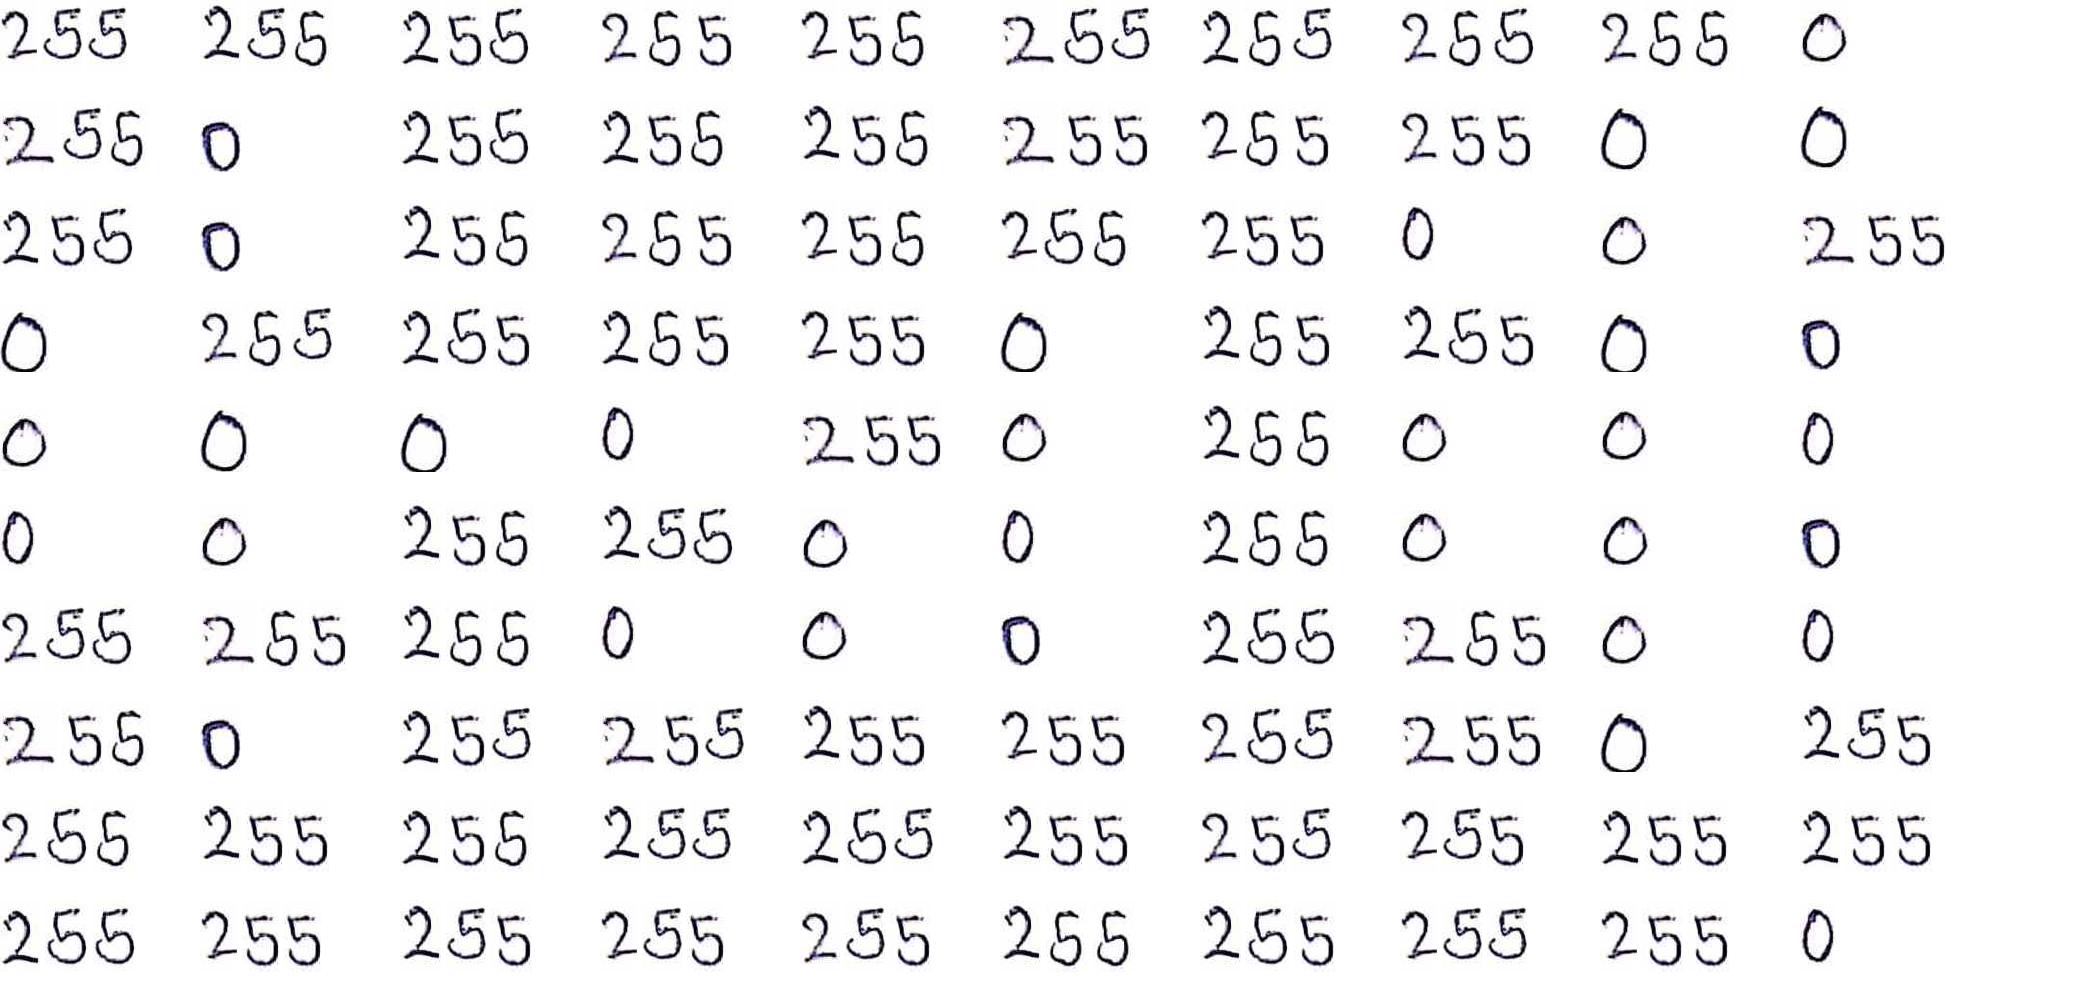 255 255 255 255 255 255 255 255 255 0
255 0 255 255 255 255 255 255 0 0
255 0 255 255 255 255 255 0 0 255
0 255 255 255 255 0 255 255 0 0
0 0 0 0 255 0 255 0 0 0
0 0 255 255 0 0 255 0 0 0
255 255 255 0 0 0 255 255 0 0
255 0 255 255 255 255 255 255 0 255
255 255 255 255 255 255 255 255 255 255
255 255 255 255 255 255 255 255 255 0